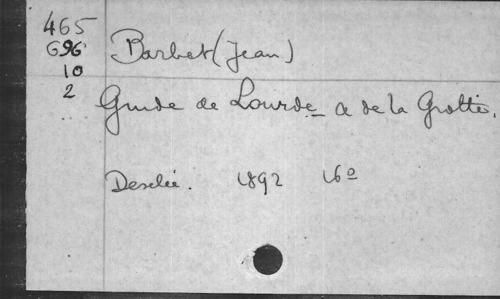 465
696
10
2
Barbet (Jean)
Guide de Lourde_ a de la Grotte.
Desclée. 1892 16º